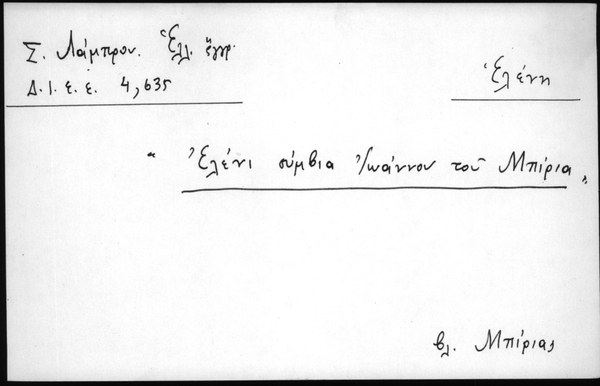 Σ. Λάμπρου. Ἑλλ. ἔγγρ.
Δ.Ι.Ε.Ε. 4,635
Ἑλένη
" Ἑλένι σύμβια Ἰωάννου τοῦ Μπίρια "
βλ. Μπίριας